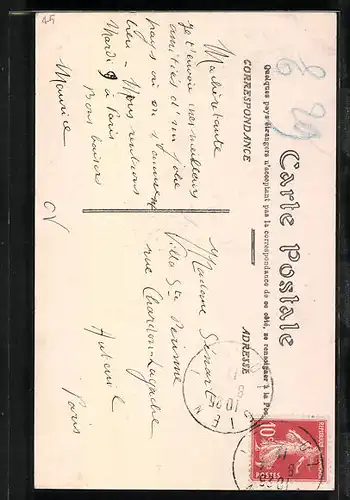 Carte Postale
Quelques pays étrangers n'acceptant pas la correspondance de ce côté, se renseigner à la Poste
CORRESPONDANCE
ADRESSE
Ma chère tante
Je t'envoie mes meilleurs
amitiés d'un joli
pays où on s'amuse
bien - Nous rentrons
Mardi 9 à Paris
Bons baisers
Maurice
Madame Sénart
Villa Ste
rue Chardon-Lagache
Auteuil
Paris
10c
POSTES